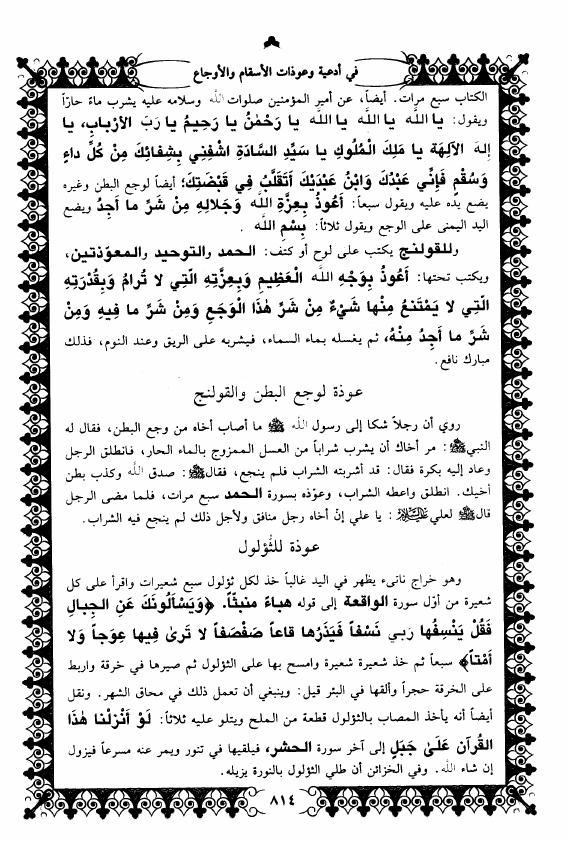 في أدعية وعوذات الأسقام والأوجاع
الكتاب سبع مرات. أيضاً، عن أمير المؤمنين صلوات الله وسلامه عليه يشرب ماءً حارّاً
ويقول: يا اللَّه يا اللَّه يا اللَّه يا رَحْمٰنُ يا رَحِيمُ يا رَبَّ الأرْبابِ، يا
إلهَ الآلِهَةِ يا مَلِكَ الْمُلُوكِ يا سَيِّدَ السَّادَةِ اشْفِنِي بِشِفائِكَ مِنْ كُلِّ داءٍ
وَسُقْمٍ فَإنِّي عَبْدُكَ وَابْنُ عَبْدَيْكَ أتَقَلَّبُ فِي قَبْضَتِكَ؛ أيضاً لوجع البطن وغيره
يضع يده عليه ويقول سبعاً: أعُوذُ بِعِزَّةِ اللَّهِ وَجَلالِهِ مِنْ شَرِّ ما أجِدُ ويضع
اليد اليمنى على الوجع ويقول ثلاثاً: بِسْمِ اللَّه .
وللقولنج يكتب على لوح أو كتف: الحمد والتوحيد والمعوّذتين،
ويكتب تحتها: أعُوذُ بِوَجْهِ اللَّهِ الْعَظِيمِ وَبِعِزَّتِهِ الَّتِي لا تُرامُ وَبِقُدْرَتِهِ
الَّتِي لا يَمْتَنِعُ مِنْها شَيْءٌ مِنْ شَرِّ هٰذَا الْوَجَعِ وَمِنْ شَرِّ ما فِيهِ وَمِنْ
شَرِّ ما أجِدُ مِنْهُ، ثم يغسله بماء السماء، فيشربه على الريق وعند النوم، فذلك
مبارك نافع.
عوذة لوجع البطن والقولنج
روي أن رجلاً شكا إلى رسول الله ﷺ ما أصاب أخاه من وجع البطن، فقال له
النبي ﷺ: مر أخاك أن يشرب شراباً من العسل الممزوج بالماء الحار، فانطلق الرجل
وعاد إليه بكرة فقال: قد أشربته الشراب فلم ينجع، فقال ﷺ: صدق الله وكذب بطن
أخيك. انطلق واعطه الشراب، وعوّذه بسورة الحمد سبع مرات، فلما مضى الرجل
قال ﷺ لعلي عليه السلام: يا علي إنّ أخاه رجل منافق ولأجل ذلك لم ينجع فيه الشراب.
عوذة للثّؤلول
وهو خراج ناتىء يظهر في اليد غالباً خذ لكل ثؤلول سبع شعيرات واقرأ على كل
شعيرة من أوّل سورة الواقعة إلى قوله هباءً منبثّاً. ﴿وَيَسْألُونَكَ عَنِ الْجِبالِ
فَقُلْ يَنْسِفُها رَبِي نَسْفاً فَيَذَرُها قاعاً صَفْصَفاً لا تَرىٰ فِيها عِوَجاً وَلا
أمْتاً﴾ سبعاً ثم خذ شعيرة شعيرة وامسح بها على الثؤلول ثم صيرها في خرقة واربط
على الخرقة حجراً وألقها في البئر قيل: وينبغي أن تعمل ذلك في محاق الشهر. ونقل
أيضاً أنه يأخذ المصاب بالثؤلول قطعة من الملح ويتلو عليه ثلاثاً: لَوْ أنْزَلْنا هٰذَا
القُرآن عَلىٰ جَبَلٍ إلى آخر سورة الحشر، فيلقيها في تنور ويمر عنه مسرعاً فيزول
إن شاء الله. وفي الخزائن أن طلي الثؤلول بالنورة يزيله.
٨١٤